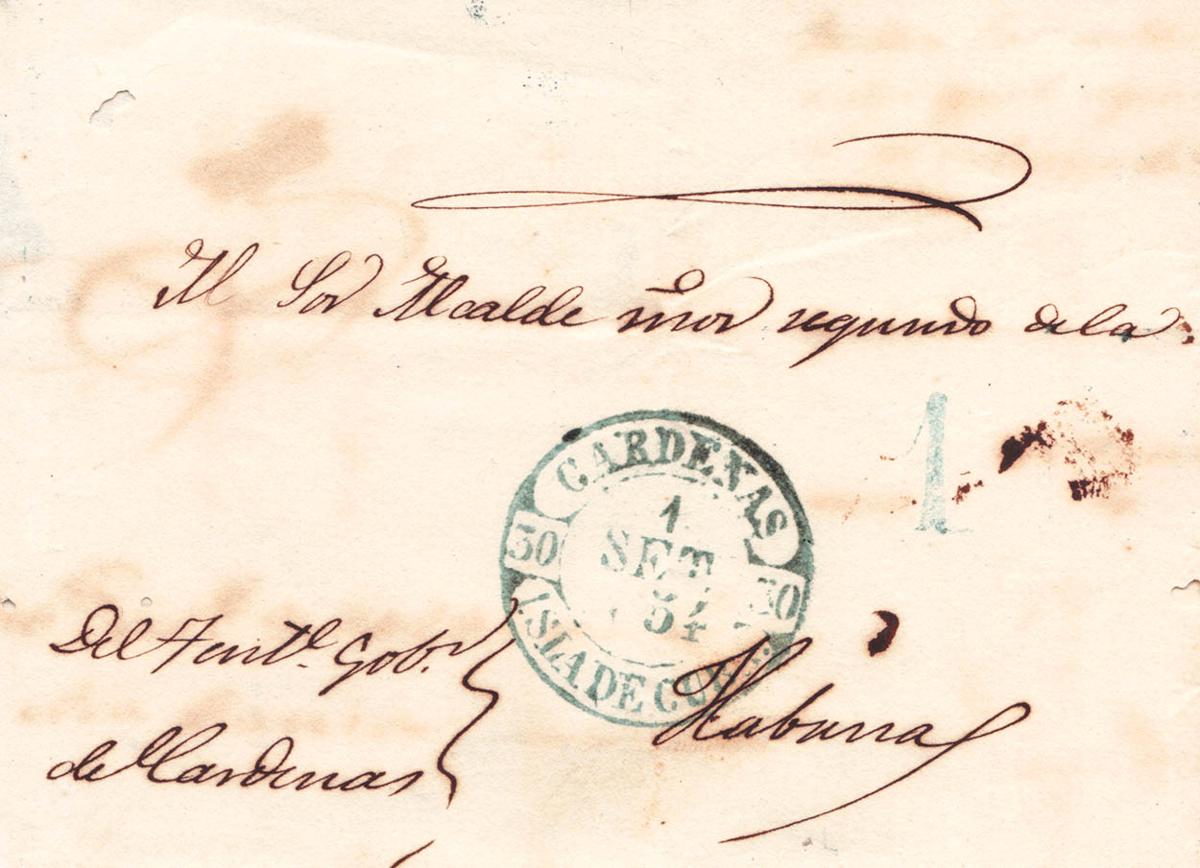 Al Sor Alcalde mor segundo dela
CARDENAS
1
SET
54
30
ISLA DE CUBA
1
Del Tente. Gobr.
de Cardenas
Habana